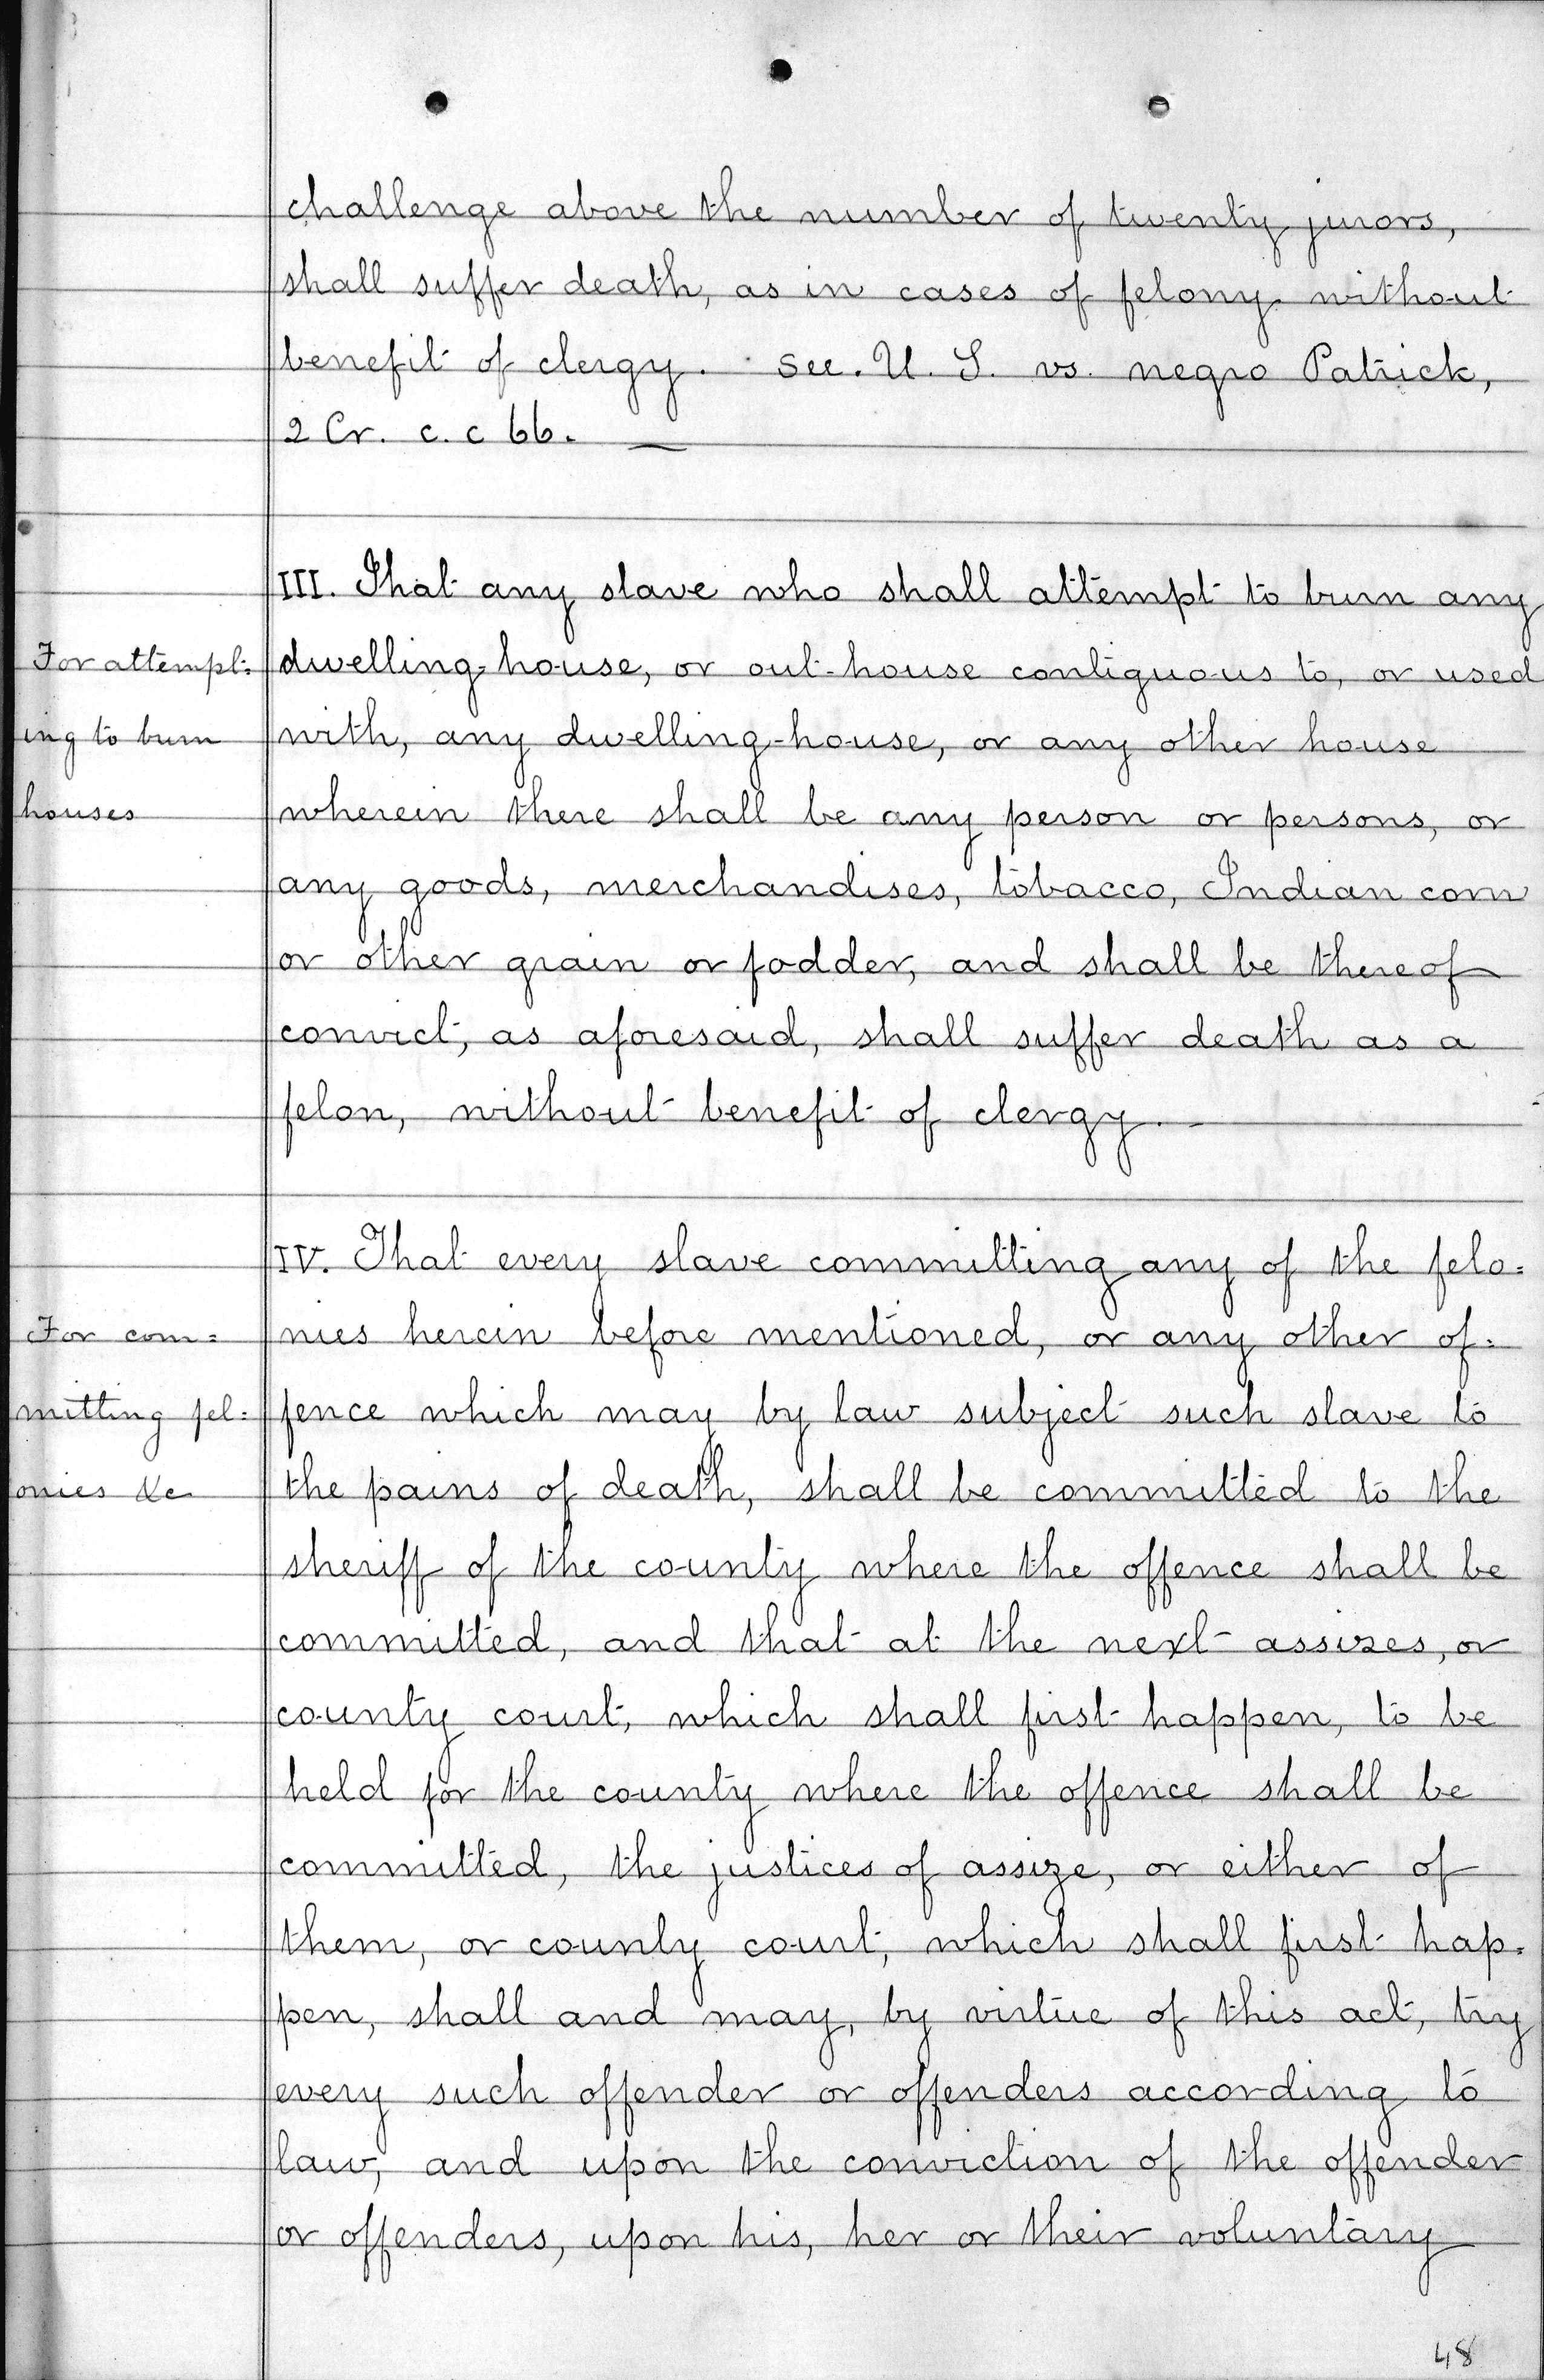 challenge above the number of twenty jurors,
shall suffer death, as in cases of felony without
benefit of clergy. See. U. S. vs. negro Patrick,
2 Cr. c. c 66. —
III. That any slave who shall attempt to burn any
For attempt= dwelling-house, or out-house contiguous to, or used
ing to burn with, any dwelling-house, or any other house
houses wherein there shall be any person or persons, or
any goods, merchandises, tobacco, Indian corn
or other grain or fodder, and shall be thereof
convict, as aforesaid, shall suffer death as a
felon, without benefit of clergy. -
IV. That every slave committing any of the felo=
For com= nies herein before mentioned, or any other of=
mitting fel= fence which may by law subject such slave to
onies &c the pains of death, shall be committed to the
sheriff of the county where the offence shall be
committed, and that at the next assizes, or
county court, which shall first happen, to be
held for the county where the offence shall be
committed, the justices of assize, or either of
them, or county court, which shall first hap=
pen, shall and may, by virtue of this act, try
every such offender or offenders according to
law, and upon the conviction of the offender
or offenders, upon his, her or their voluntary
48